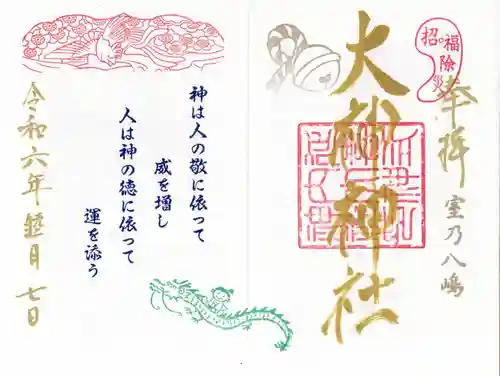 奉拝
室乃八嶋
大神神社
招福除災
神は人の敬に依って
威を増し
人は神の徳に依って
運を添う
令和六年睦月七日